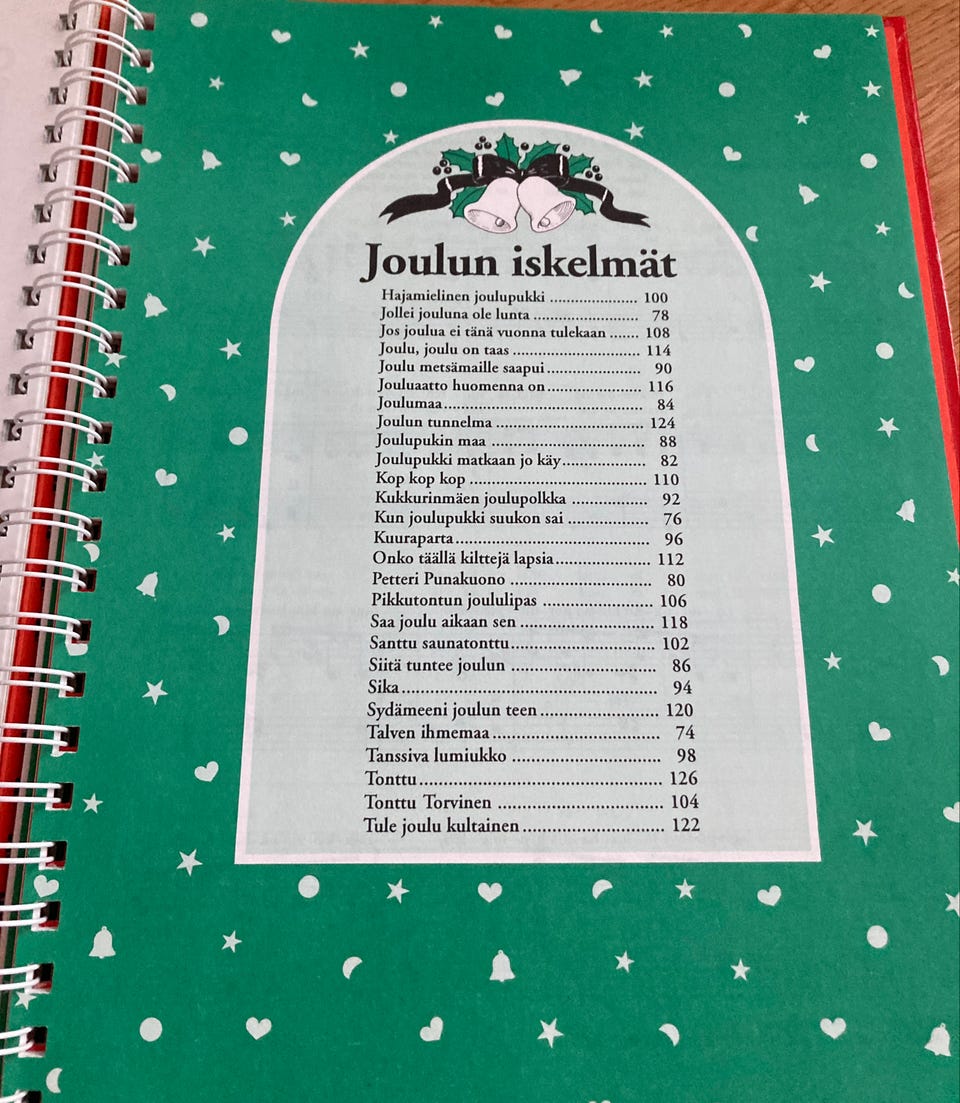 Joulun iskelmät
Hajamielinen joulupukki ..................... 100
Jollei jouluna ole lunta ......................... 78
Jos joulua ei tänä vuonna tulekaan ....... 108
Joulu, joulu on taas ............................... 114
Joulu metsämaille saapui ....................... 90
Jouluaatto huomenna on ....................... 116
Joulumaa ................................................ 84
Joulun tunnelma ................................... 124
Joulupukin maa ..................................... 88
Joulupukki matkaan jo käy .................... 82
Kop kop kop .......................................... 110
Kukkurinmäen joulupolkka .................. 92
Kun joulupukki suukon sai ................... 76
Kuuraparta ............................................. 96
Onko täällä kilttejä lapsia ...................... 112
Petteri Punakuono ................................. 80
Pikkutontun joululipas .......................... 106
Saa joulu aikaan sen ................................ 118
Santtu saunatonttu ................................. 102
Siitä tuntee joulun ................................. 86
Sika ......................................................... 94
Sydämeeni joulun teen ........................... 120
Talven ihmemaa ..................................... 74
Tanssiva lumiukko ................................. 98
Tonttu .................................................... 126
Tonttu Torvinen .................................... 104
Tule joulu kultainen ............................... 122